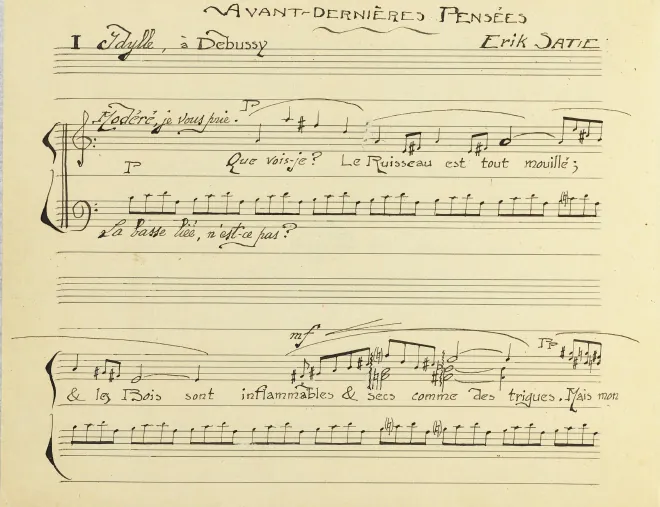 AVANT-DERNIÈRES PENSÉES
I Idylle, à Debussy Erik SATIE
Modéré, je vous prie. P
Que vois-je? Le Ruisseau est tout mouillé;
P
La basse liée, n'est-ce pas?
mf PP
& les Bois sont inflammables & secs comme des trigues. Mais mon